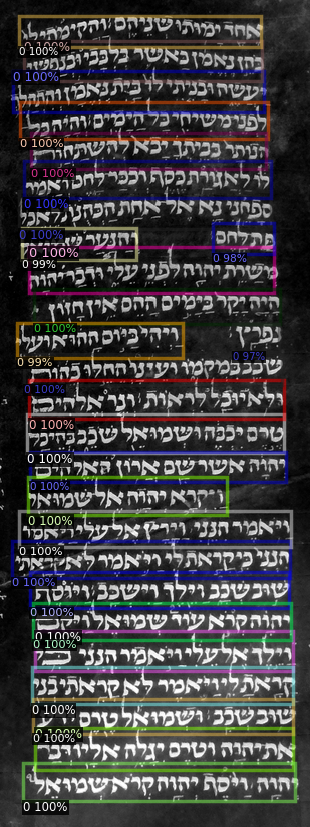 אחד ימותו שניהם והקימתי לי
כהן נאמן כאשר בלבבי ובנפשי
יעשה ובניתי לו בית נאמן והתהלך
לפני משיחי כל הימים והיה כל
הנותר בביתך יבא להשתחות
לו לאגורת כסף וככר לחם ואמר
ספחני נא אל אחת הכהנות לאכל
פת לחם והנער שמואל
משרת את יהוה לפני עלי ודבר יהוה
היה יקר בימים ההם אין חזון
נפרץ ויהי ביום ההוא ועלי
שכב במקמו ועינו החלו כהות
לא יוכל לראות ונר אלהים
טרם יכבה ושמואל שכב בהיכל
יהוה אשר שם ארון אלהים
ויקרא יהוה אל שמואל
ויאמר הנני וירץ אל עלי ויאמר
הנני כי קראת לי ויאמר לא קראתי
שוב שכב וילך וישכב ויסף
יהוה קרא עוד שמואל ויקם
וילך אל עלי ויאמר הנני כי
קראת לי ויאמר לא קראתי בני
שוב שכב ושמואל טרם ידע
את יהוה וטרם יגלה אליו דבר
יהוה ויסף יהוה קרא שמואל